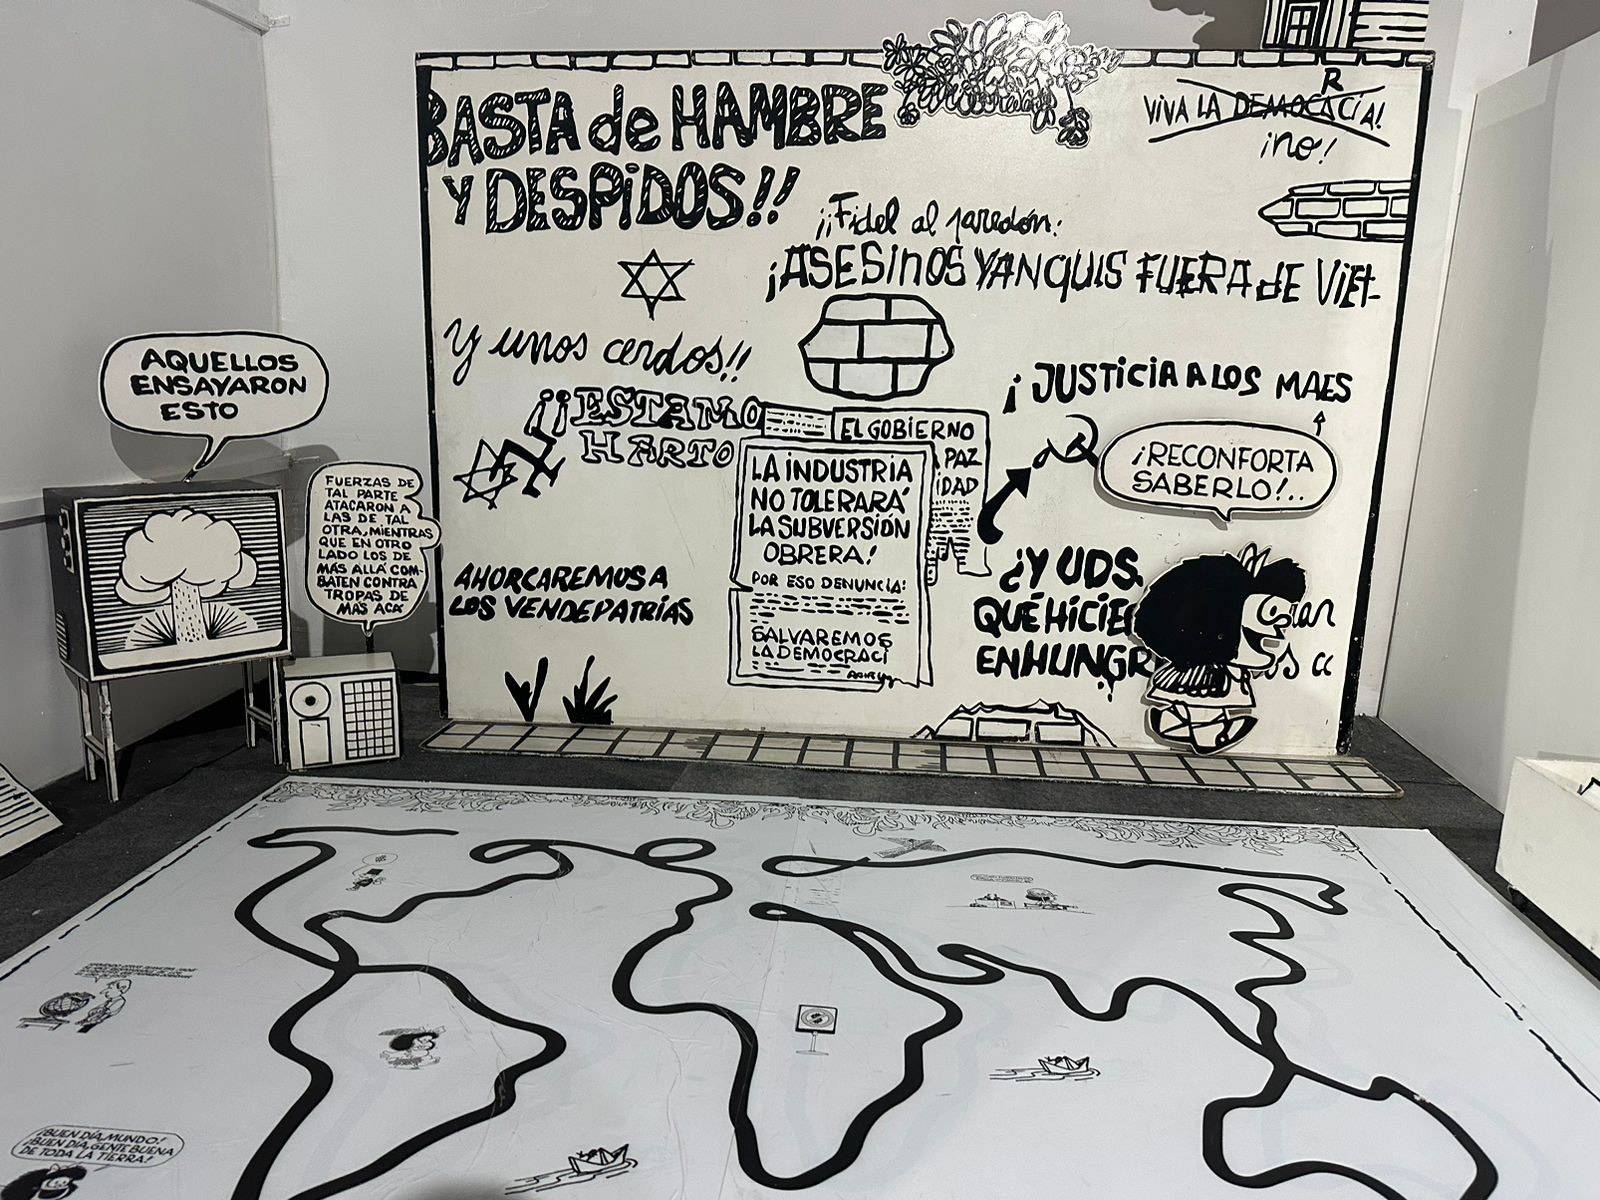 BASTA de HAMBRE
Y DESPIDOS!!
R
VIVA LA DEMOCACÍA!
¡no!
¡¡Fidel al paredón!
¡ASESINOS YANQUIS FUERA dE VIET-
Y unos cerdos!!
¡¡ESTAMO
HARTO
¡JUSTICIA A LOS MAES
¡RECONFORTA
SABERLO!..
EL GOBIERNO
PAZ
IDAD
LA INDUSTRIA
NO TOLERARÁ
LA SUBVERSIÓN
OBRERA!
POR ESO DENUNCIA:
SALVAREMOS
LA DEMOCRACI
AHORCAREMOS A
LOS VENDEPATRIAS
¿Y UDS.
QUÉ HICIE
EN HUNGR
AQUELLOS
ENSAYARON
ESTO
FUERZAS DE
TAL PARTE
ATACARON A
LAS DE TAL
OTRA, MIENTRAS
QUE EN OTRO
LADO LOS DE
MÁS ALLÁ COM-
BATEN CONTRA
TROPAS DE
MÁS ACÁ
¡BUEN DÍA, MUNDO!
¡BUEN DÍA, GENTE BUENA
DE TODA LA TIERRA!